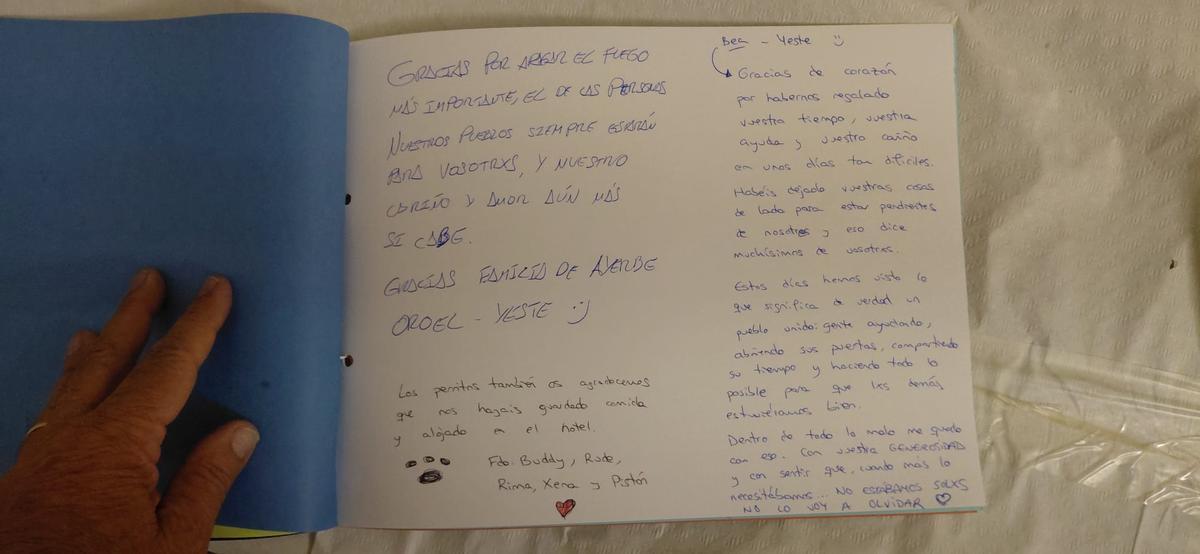 GRACIAS POR APAGAR EL FUEGO
MÁS IMPORTANTE, EL DE LAS PERSONAS
NUESTROS PUEBLOS SIEMPRE ESTARÁN
PARA VOSOTRXS, Y NUESTRO
CARIÑO Y AMOR AÚN MÁS
SI CABE.
GRACIAS FAMILIA DE AYERBE
OROEL - YESTE :)
Los perritos también os agradecemos
que nos hayais guardado comida
y alojado en el hotel.
Fdo: Buddy, Rude,
Rima, Xena y Pistón
Bea - Yeste :)
Gracias de corazón
por habernos regalado
vuestro tiempo, vuestra
ayuda y vuestro cariño
en unos días tan difíciles.
Habéis dejado vuestras cosas
de lado para estar pendientes
de nosotres y eso dice
muchísimos de vosotres.
Estos días hemos visto lo
que significa de verdad un
pueblo unido: gente ayudando,
abriendo sus puertas, compartiendo
su tiempo y haciendo todo lo
posible para que les demás
estuviéramos bien.
Dentro de todo lo malo me quedo
con eso. Con vuestra GENEROSIDAD
y con sentir que, cuando más lo
necesitábamos... NO ESTÁBAMOS SOLXS
NO LO VOY A OLVIDAR ♡